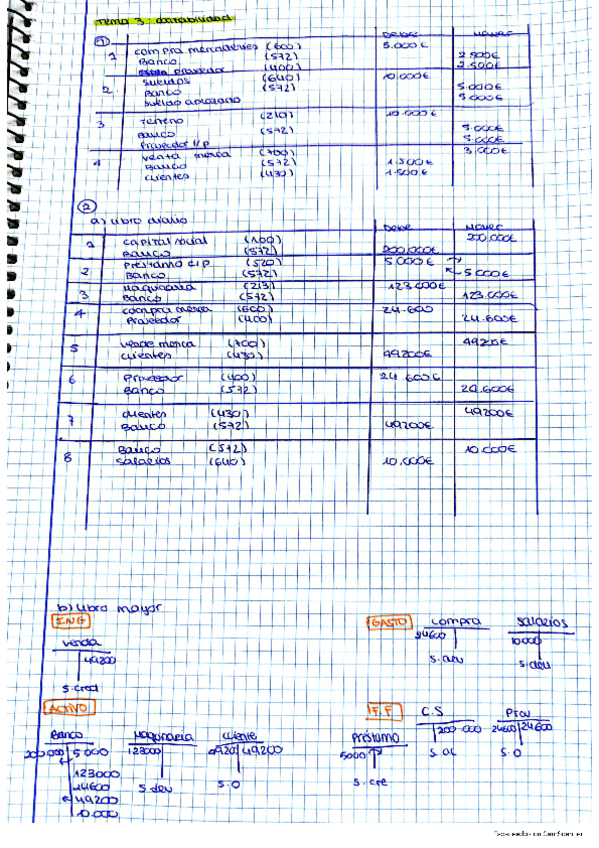 Tema 3 contabilidad
①
Debe Haver
1 compra mercaderies (600) 5.000€
Banco (572) 2.500€
proveedor (400) 2.500€
2 sueldos (640) 10.000€
Banco (572) 5.000€
sueldo 5.000€
3 terreno (210) 10.000€
Banco (572) 5.000€
Proveedor l/p 5.000€
4 venta merca (700) 3.000€
Banco (572) 1.500€
clientes (430) 1.500€
②
a) libro diario
Debe Haver
1 capital social (100) 200.000€
Banco (572) 200.000€
2 Prestamo c/p (520) 5.000€
Banco (572) 5.000€
3 Maquinaria (213) 123.000€
Banco (572) 123.000€
4 compra merca (600) 24.600
Proveedor (400) 24.600€
5 merca (700) 49200€
clientes (430) 49200€
6 Proveedor (400) 24.600€
Banco (572) 24.600€
7 clientes (430) 49200€
Banco (572) 49200€
8 Banco (572) 10.000€
Salarios (640) 10.000€
b) libro mayor
ING GASTO compra salarios
venda 24600 10000
49200 s.deu s.deu
s.cred
ACTIVO F.F C.S Prov
Banco Maquinaria cliente Préstamo 200.000 24600 24600
200000 5000 123000 49200 5000 s.0
123000 s.deu s.0 s.cre
24600
49200
10.000